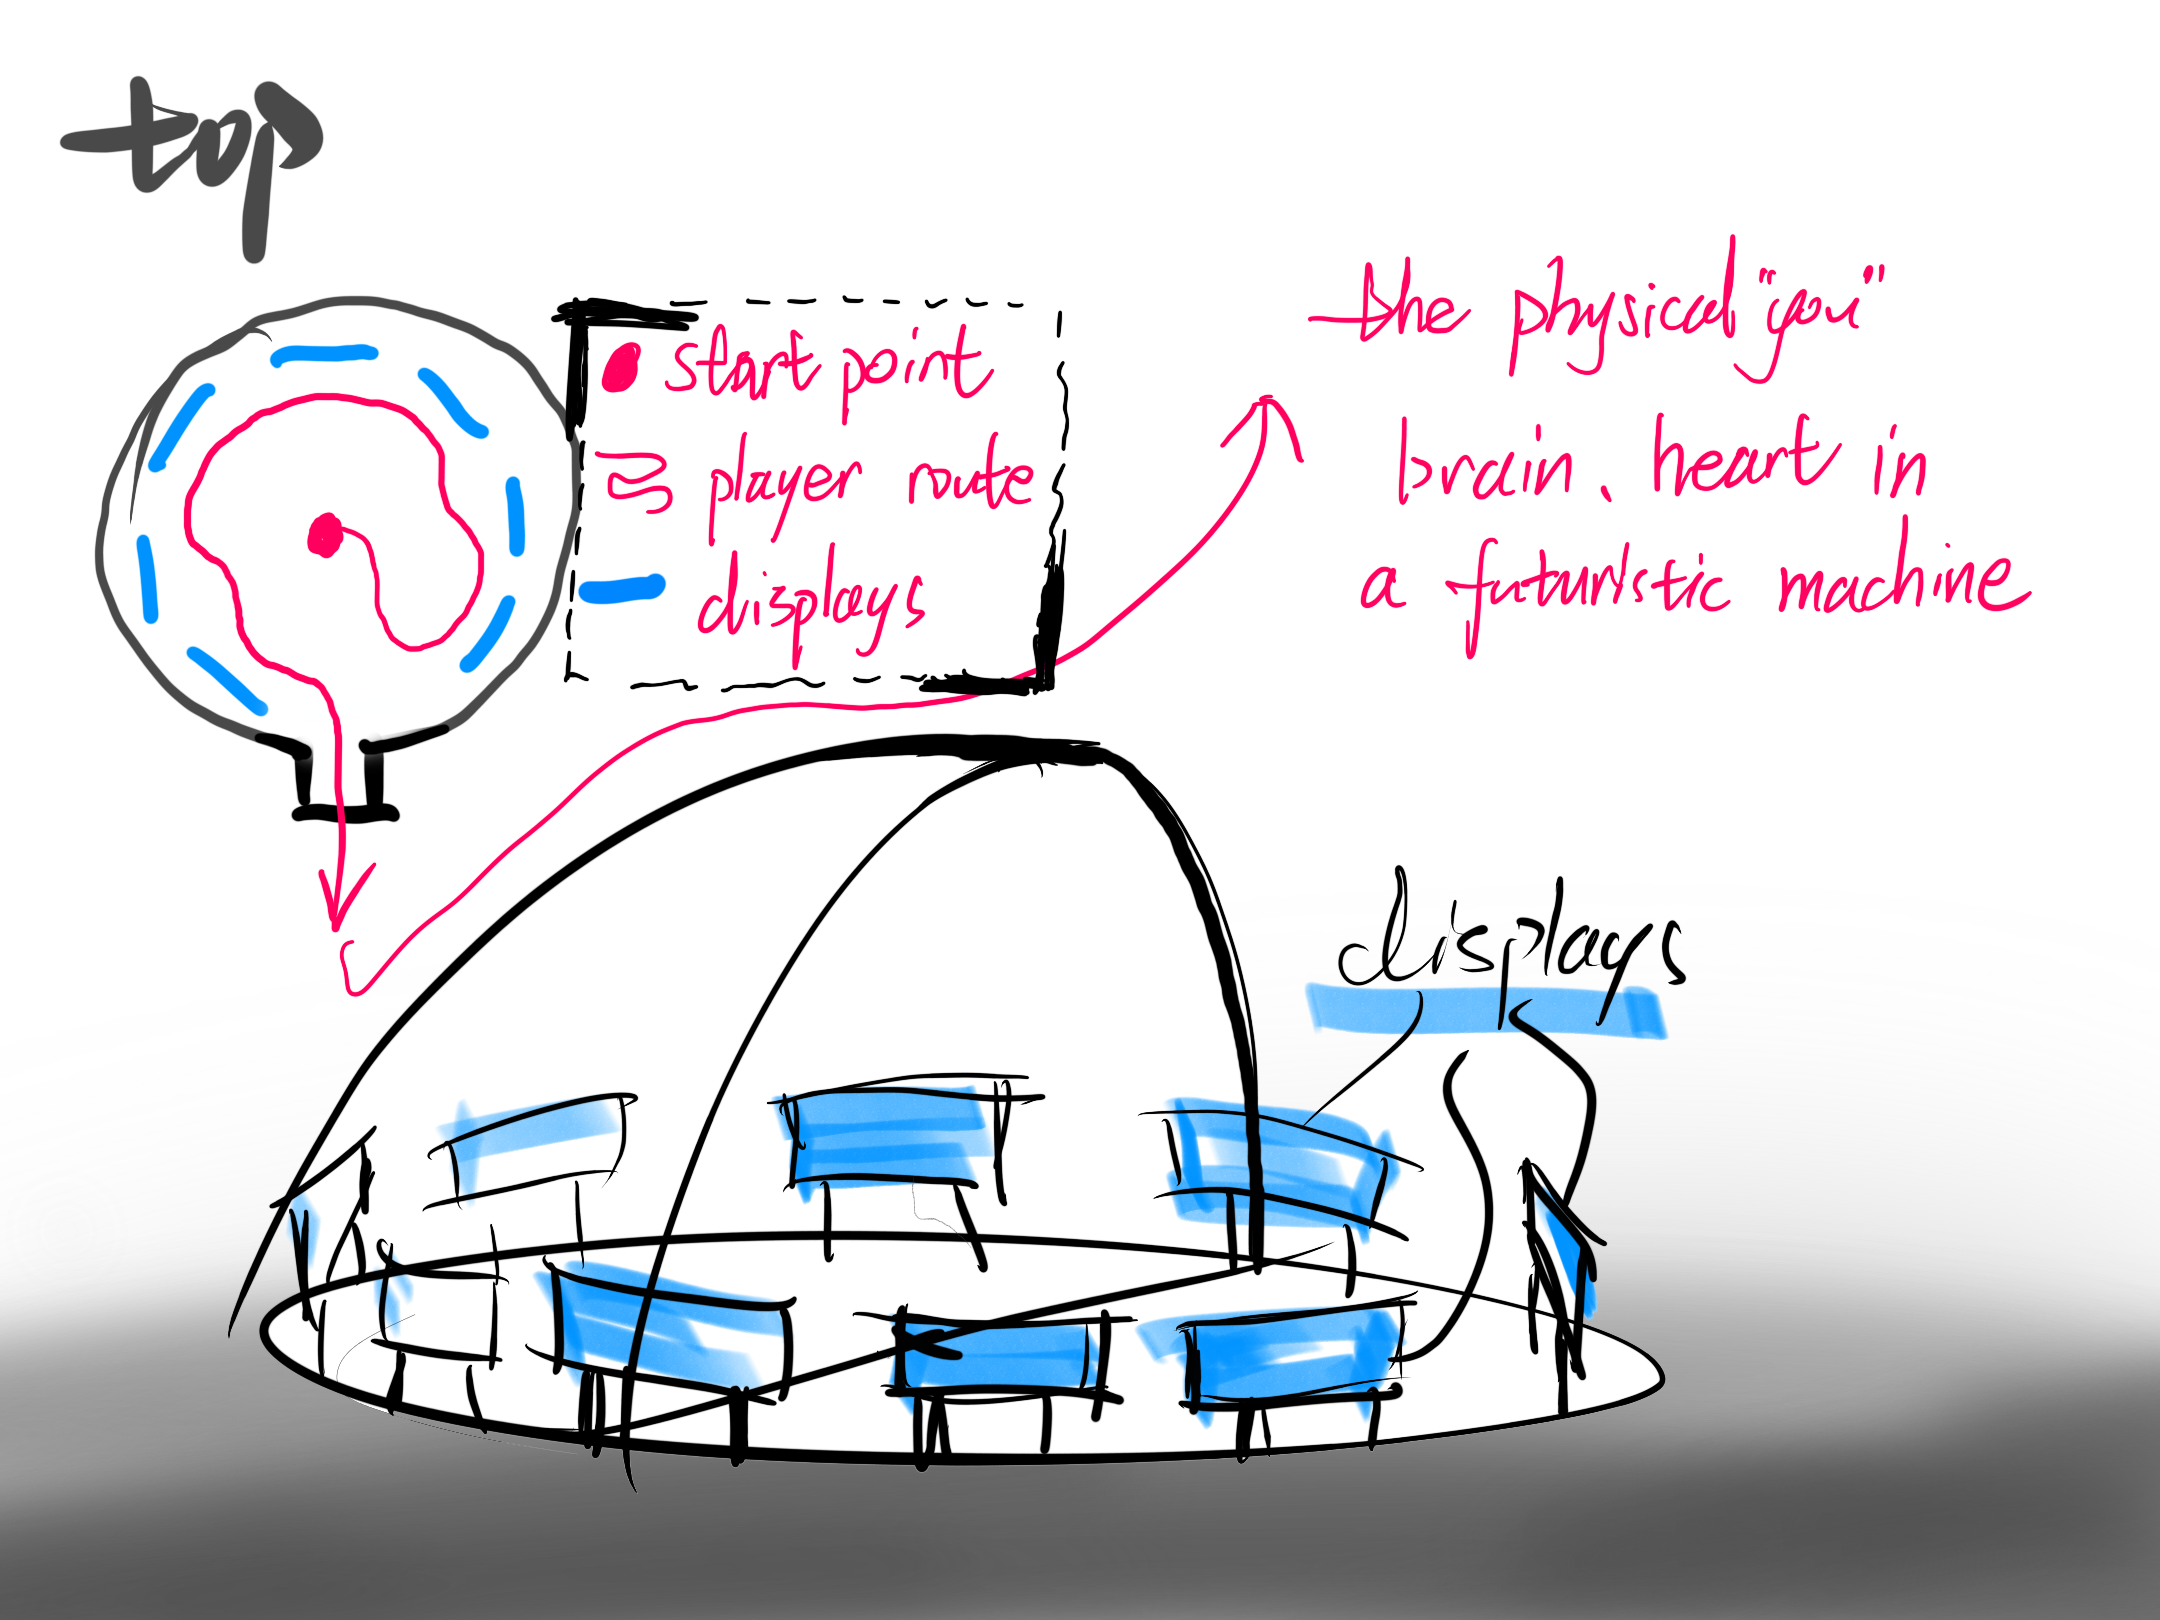 top
start point
player route
displays
the physical "you"
brain、heart in
a futuristic machine
displays